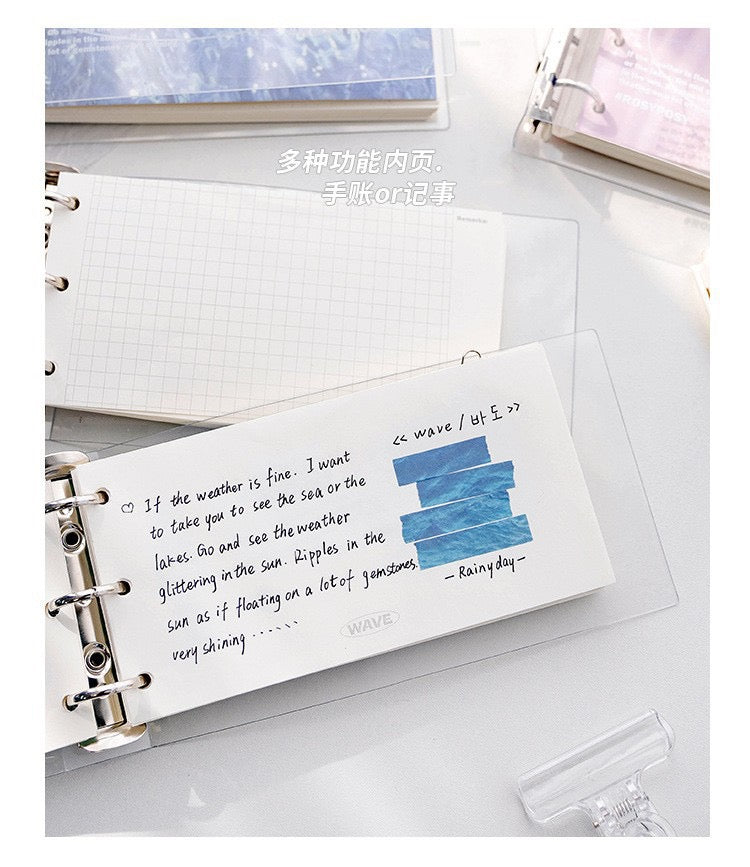 lot of gemstones
多种功能内页.
手账or记事
#ROSYPOSY
Remarks:
<< wave / 바도 >>
♡ If the weather is fine. I want
to take you to see the sea or the
lakes. Go and see the weather
glittering in the sun. Ripples in the
sun as if floating on a lot of gemstones.
very shining ······
— Rainyday —
WAVE